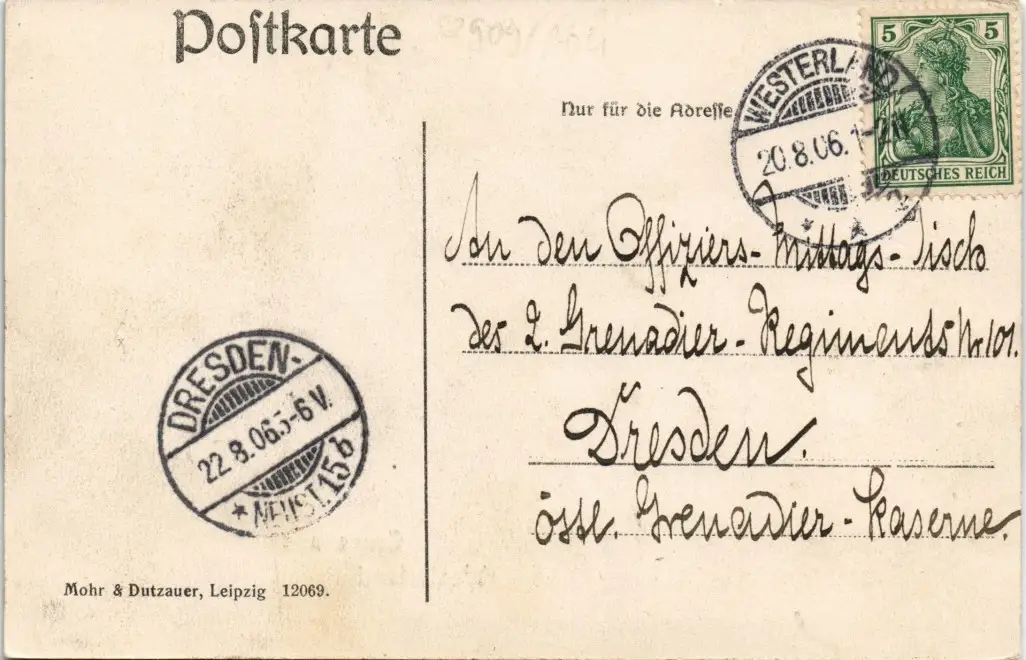 Postkarte
Nur für die Adresse
5 5
DEUTSCHES REICH
WESTERLAND
20.8.06. 1-2N
An den Offiziers-Mittags-Tisch
des 2. Grenadier-Regiments Nr 101.
Dresden.
östl. Grenadier-Kaserne.
DRESDEN-
22.8.06.5-6V.
* NEUST. 15b
Mohr & Dutzauer, Leipzig 12069.